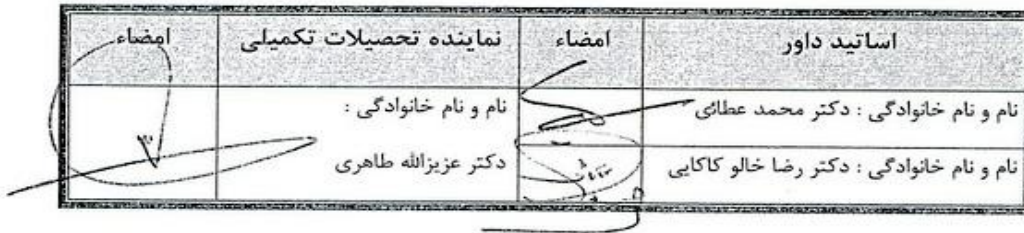 اساتید داور
امضاء
نماینده تحصیلات تکمیلی
امضاء
نام و نام خانوادگی : دکتر محمد عطائی
نام و نام خانوادگی :
دکتر عزیزالله طاهری
نام و نام خانوادگی : دکتر رضا خالو کاکایی